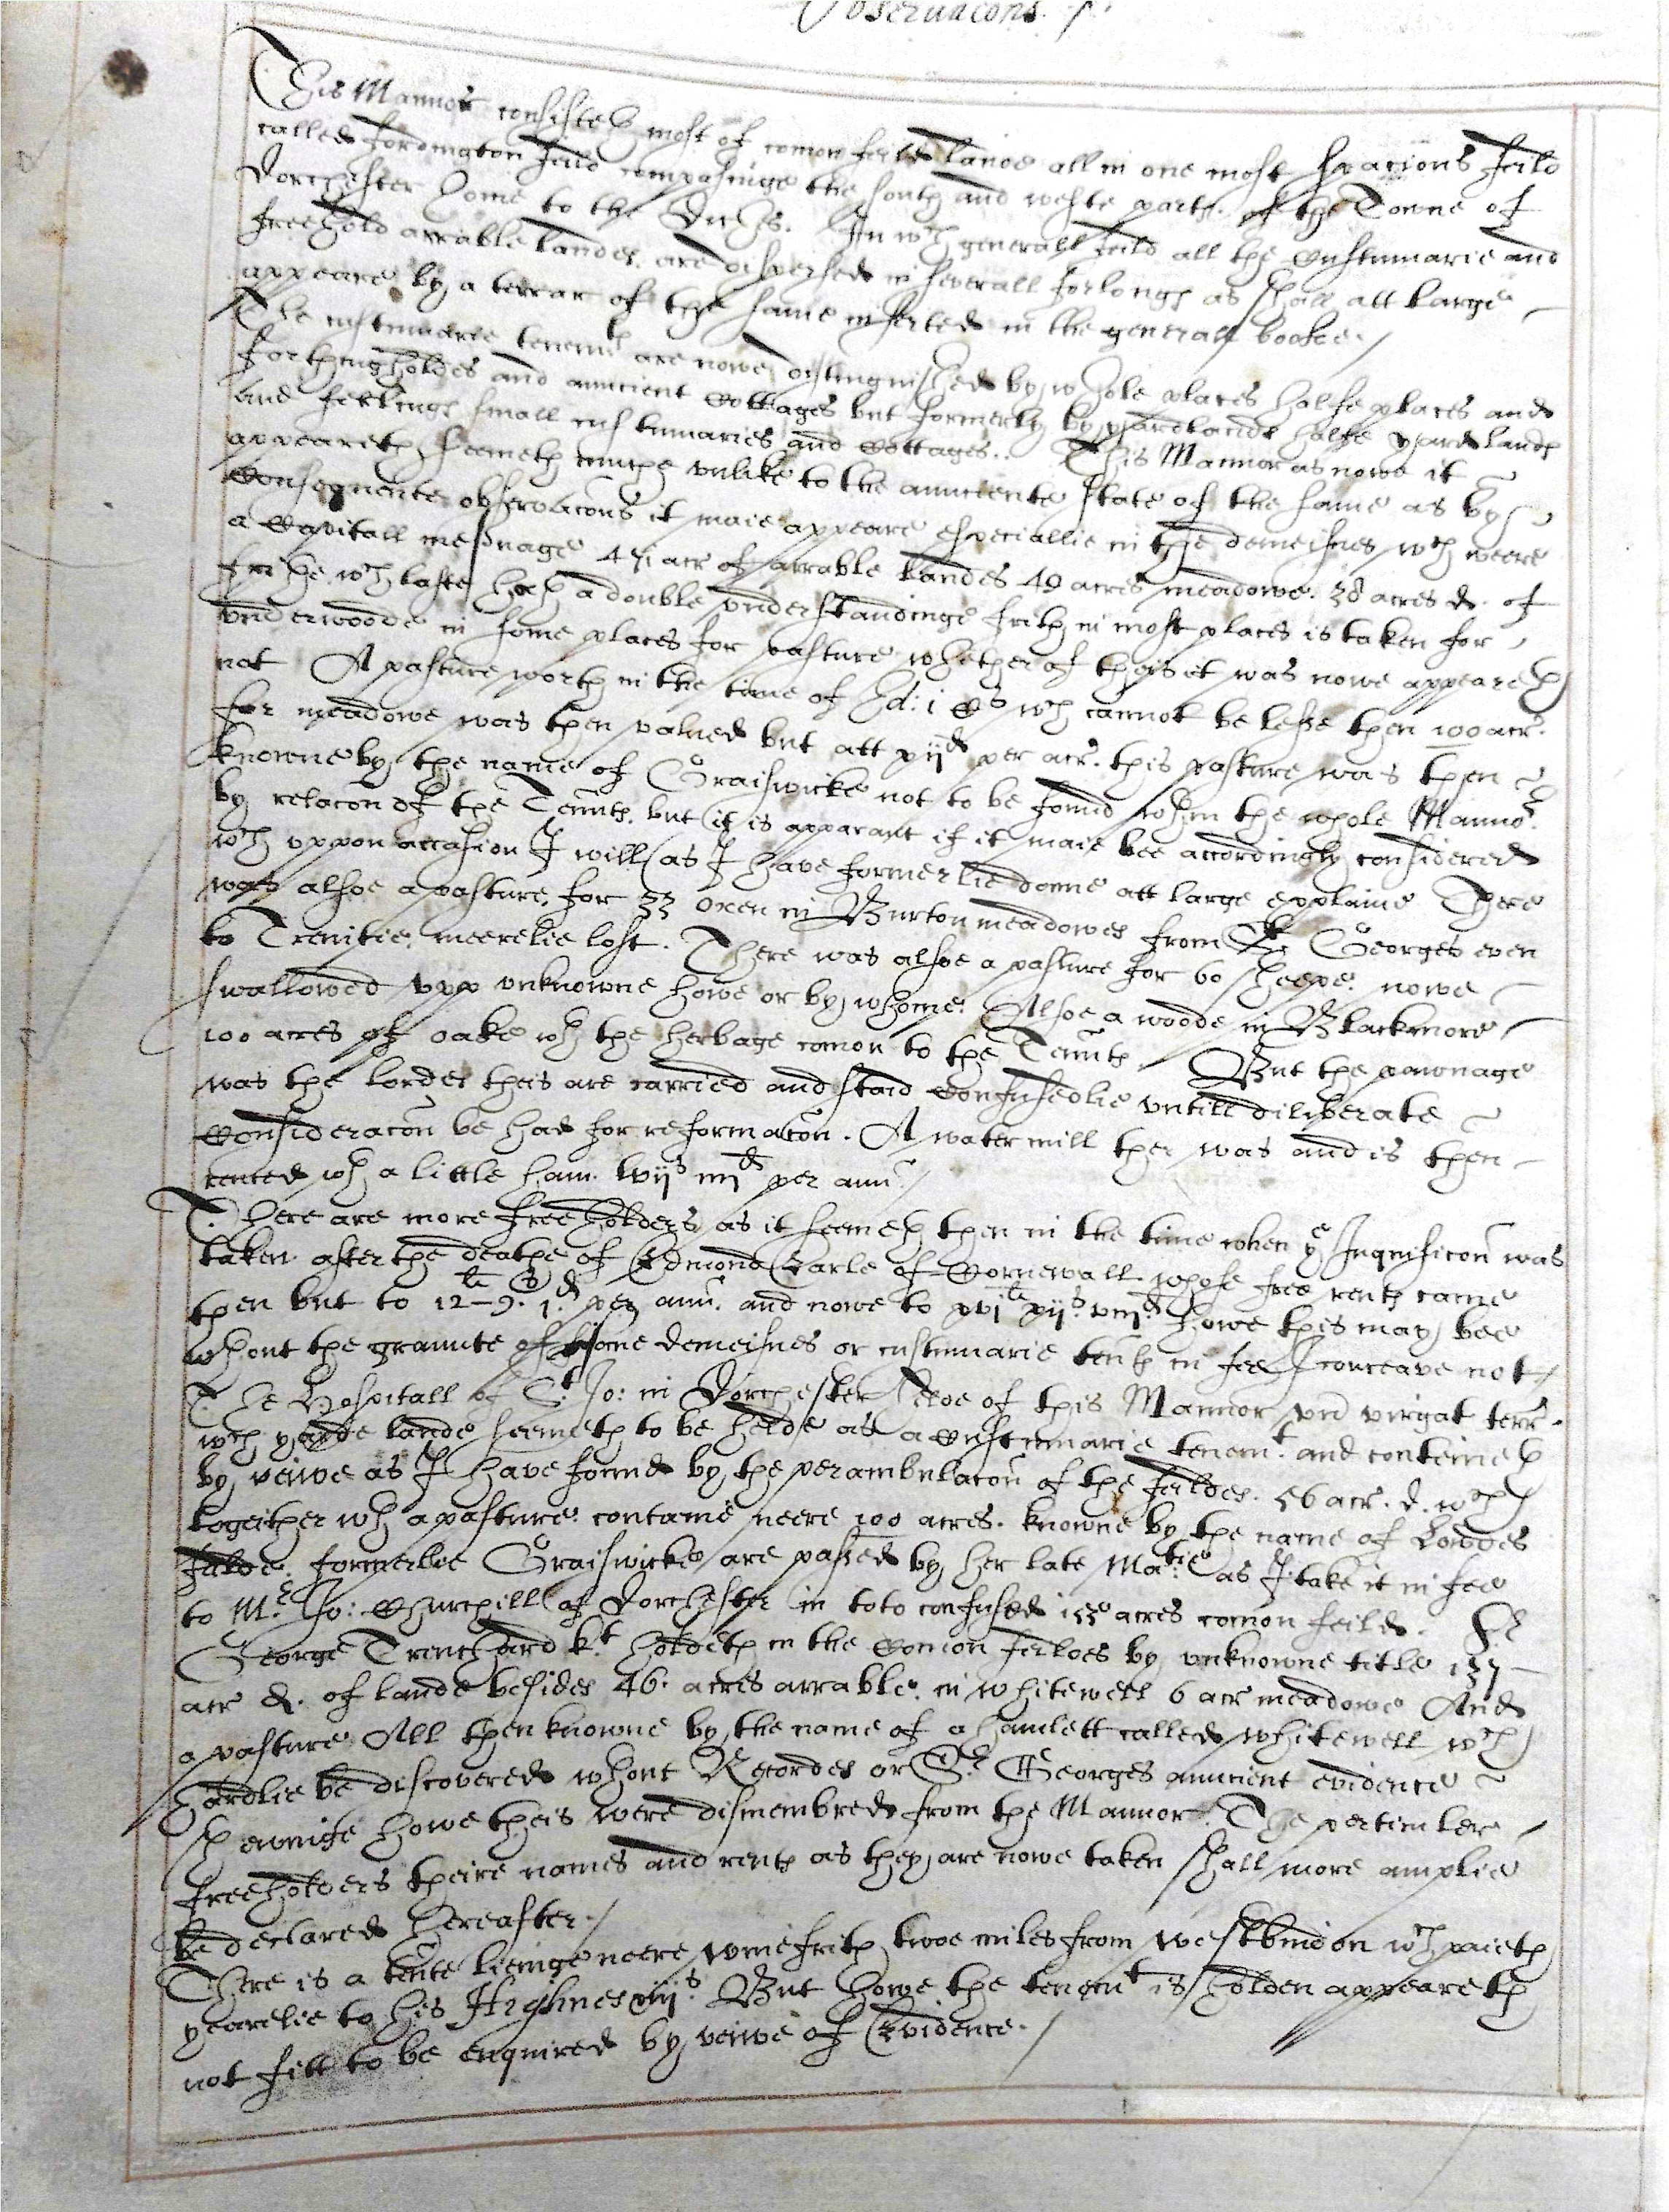 Observacons. /.
This Mannor consisteth most of comon feild lande all in one most spacious feild
called Fordington feild compasinge the south and weste parts of the Towne of
Dorchester home to the Ditches. In wch generall feild all the Custumarie and
freehold arrable landes are dispersed in severall forlongs as shall att large
appeare by a terrar of the same inserted in the generall booke. /
The custumarie tenemts are nowe distinguished by whole places halfe places and
forthingholdes and auncient Cottages but formerly by yardlands halfe yard lands
and ferlings small custumaries and Cottages. This Mannor as nowe it
appeareth seemeth muche unlike to the aunciente state of the same as by
Consequente observacons it maie appeare especiallie in the demeisnes wch weere
a Capitall messuage 471 acr of arrable landes 49 acres meadowe. 38 acres d. of
frithe wch laste hath a double understandinge frith in most places is taken for
underwoode in some places for pasture whether of theis it was nowe appeareth
not A pasture worth in the time of Ed: 1 Cs wch cannot be lesse then 100 acr.
for meadowe was then valued but att xijd per acr. this pasture was then
knowne by the name of Graiswicke not to be found whin the whole Mannor
by relacon of the Tennts. but it is apparant if it maie bee accordingly considered
wch uppon occasion I will (as I have formerlie donne att large explaine There
was alsoe a pasture for 33 oxen in Burton meadowes from St Georges even
to Trenitie meerelie lost. There was alsoe a pasture for 60 sheepe. nowe
swallowed upp unknowne howe or by whome. Alsoe a woode in Blackmore
100 acres of oake wth the herbage comon to the Tennts. But the pawnage
was the lordes theis are carried and staid Confusedlie untill diliberate
Consideracon be had for reformacon. A water mill ther was and is then
rented wth a little ham. lvijs iiijd per ann. /
There are more freeholders as it seemeth then in the time when ye Inquisicon was
taken after the deathe of Edmond Earle of Cornewall whose free rents came
then but to 12li–9s. 1d. per ann. and nowe to xvjli xijs. viijd. howe this may bee
whout the graunte of some demeisnes or custumarie tents in fee I conceave not /
The Hospitall of St. Jo: in Dorchester helde of this Mannor un virgat terr.
wch yarde lande seemeth to be helde as a Custumarie tenemt. and conteineth
by veiwe as I have found by the perambulacon of the feildes. 56 acr. d. wch
togeither wth a pasture contains neere 100 acres. knowne by the name of Lowdes
feilde. formerlie Graiswicke are passed by her late Matie as I take it in fee
to Mr. Jo: Churchill of Dorchester in toto confused 153 acres comon feild. Sr
George Trenchard kt. holdeth in the Comon feildes by unknowne title 137
acr d. of lande besides 46. acres arrable in Whitewell 6 acr meadowe And
a pasture All then knowne by the name of a hamlett called Whitewell wch
hardlie be discovered whout Recordes or Sr Georges auncient evidence
howe theis were dismembred from the Mannor. The perticuler
freeholders theire names and rents as they are nowe taken shall more amplie
be declared hereafter. /
There is a tente lieinge neere Winefrith twoe miles from Westbindon wch paieth
yearelie to his Highnes iiijs. But howe the tenemt is holden appeareth
not fitt to be enquired by veiwe of Evidence. /